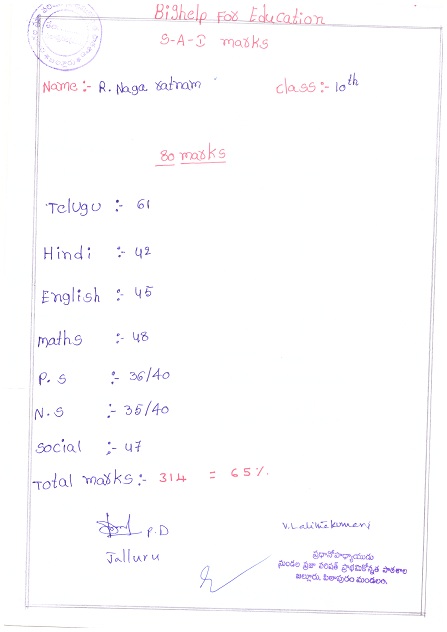 Bighelp For Education
S-A-I marks
Name :- R. Naga ratnam
class :- 10th
80 marks
Telugu :- 61
Hindi :- 42
English :- 45
maths :- 48
P.S :- 36/40
N.S :- 35/40
Social :- 47
Total marks :- 314 = 65%.
P.D
Jalluru
V. Lalithakumari
ప్రధానోపాధ్యాయుడు
మండల ప్రజా పరిషత్ ప్రాథమికోన్నత పాఠశాల
జల్లూరు, పిఠాపురం మండలం.